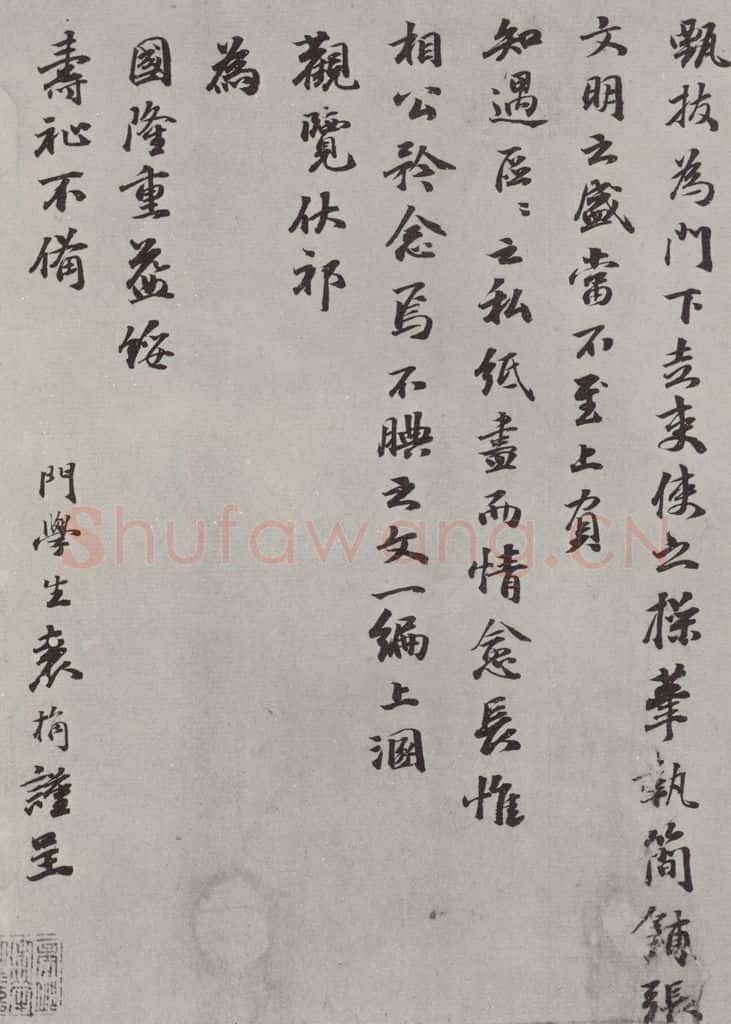 甄拔為門下走吏使之操筆執簡鋪張
文明之盛當不至上負
知遇區〻之私紙盡而情愈長惟
相公矜念焉不腆之文一編上溷
觀覽伏祁
為
國隆重益綏
壽祉不備
門學生袁桷謹呈
Shufawang.CN